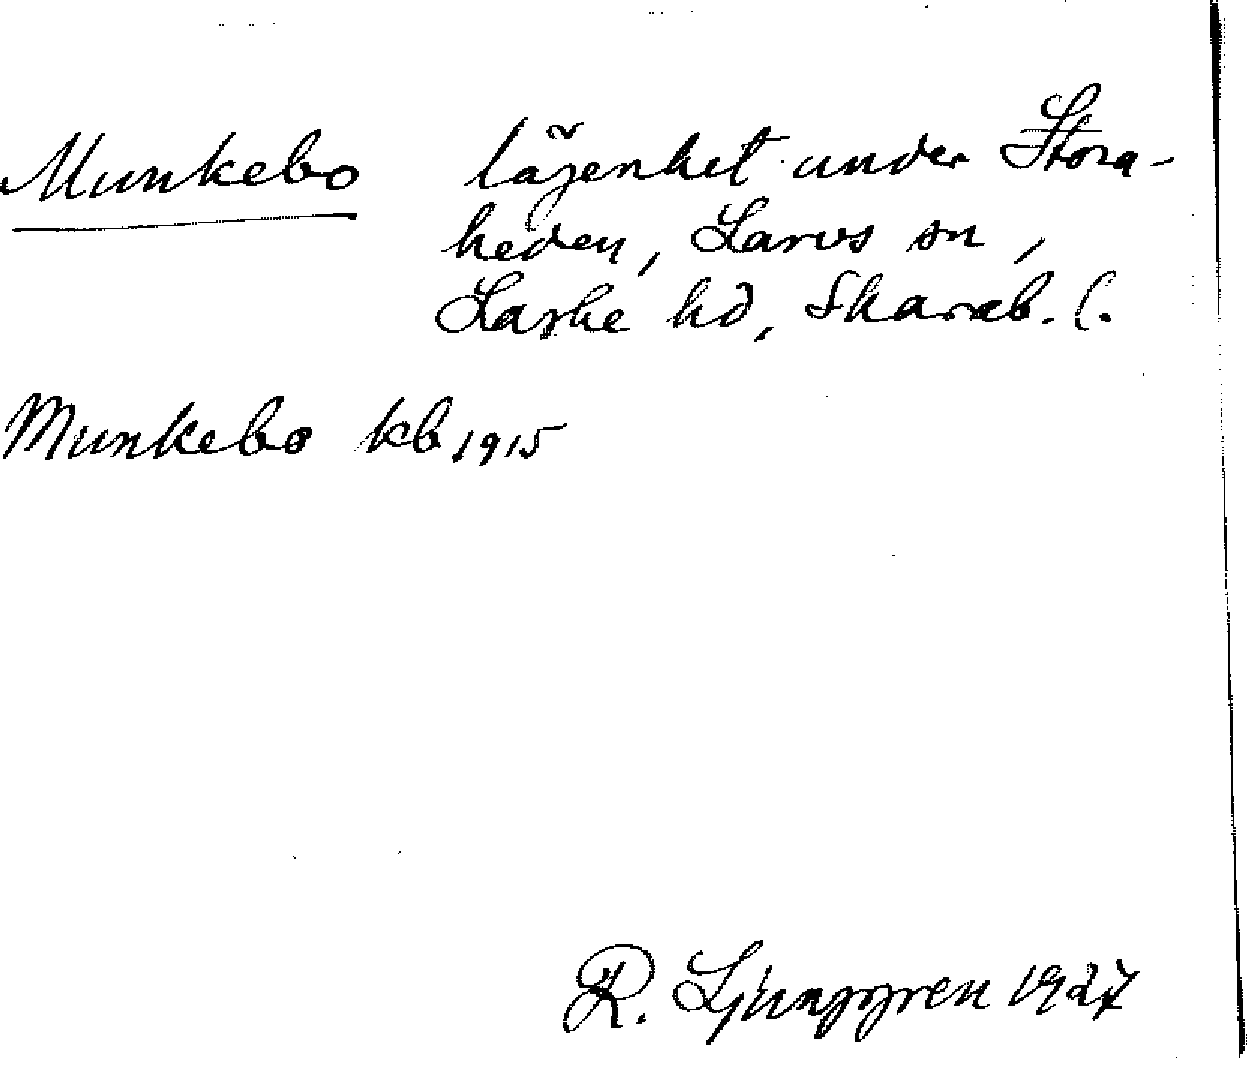 Munkebo lägenhet under Stora-
heden, Larvs sn,
Laske hd, Skarab. l.
Munkebo kb 1915
R. Ljunggren 1927